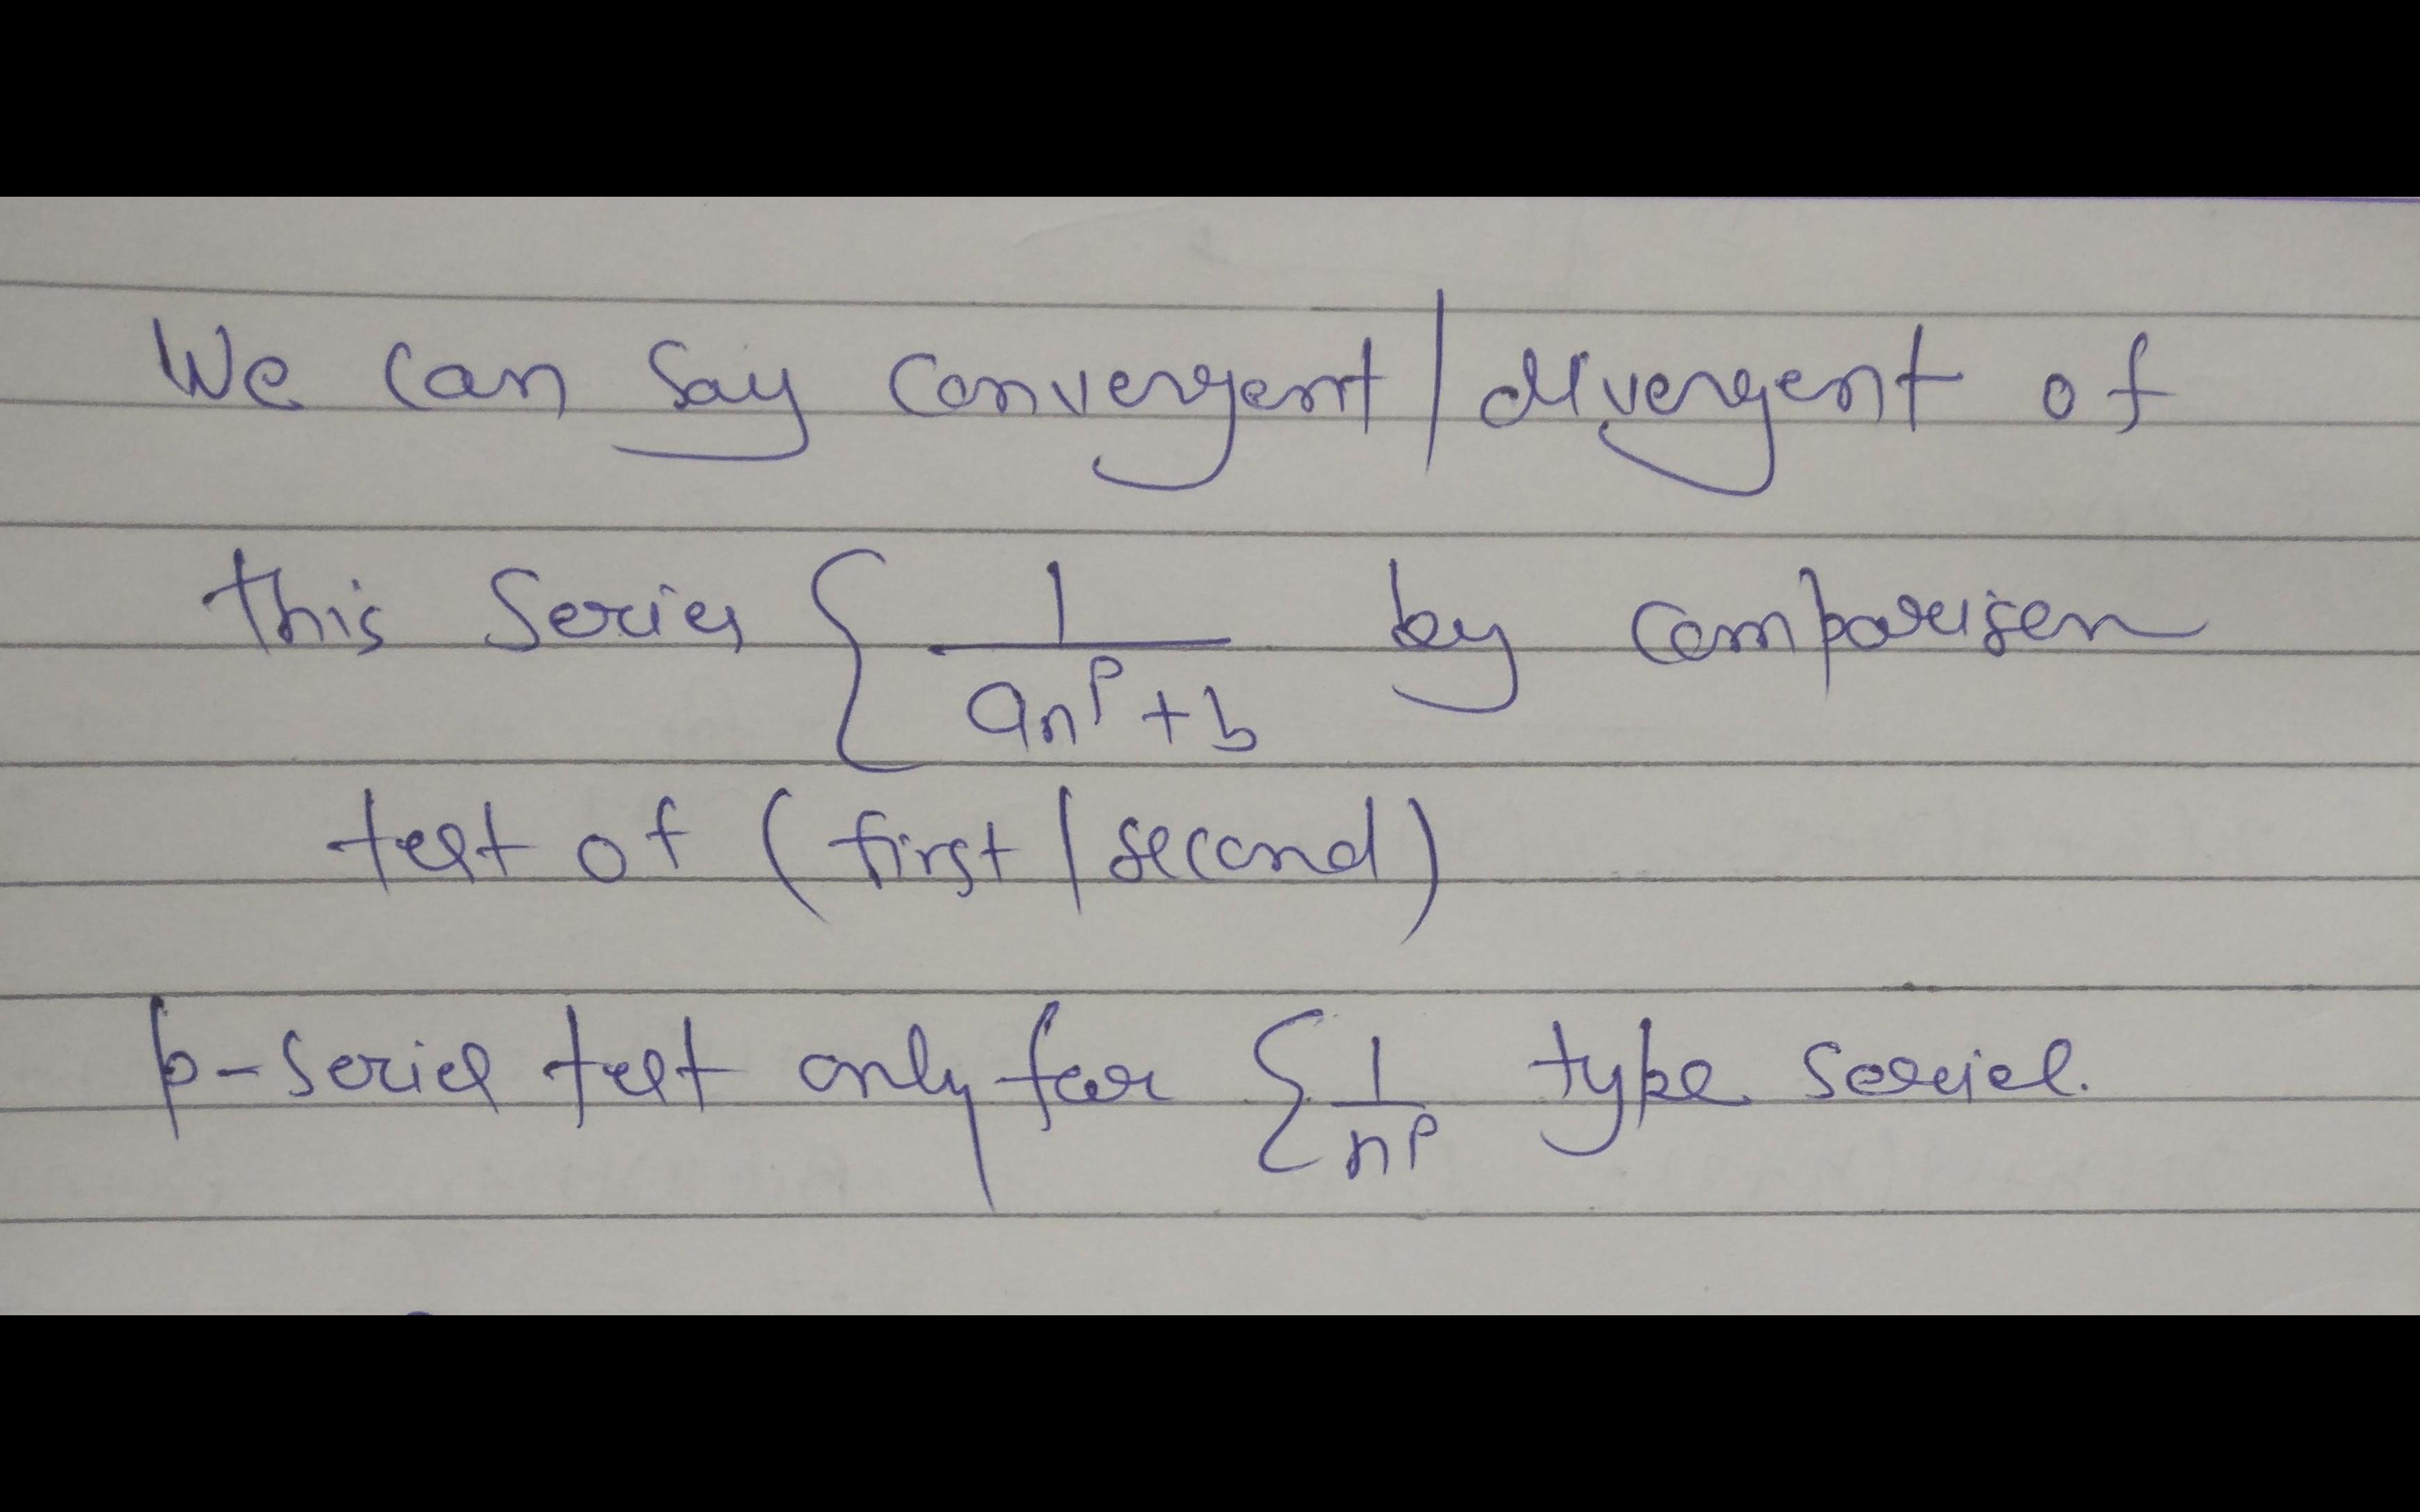 We can say convergent/divergent of
this series ∑ 1/(an^p+b) by comparison
test of (first/second)
p-series test only for ∑ 1/n^p type series.